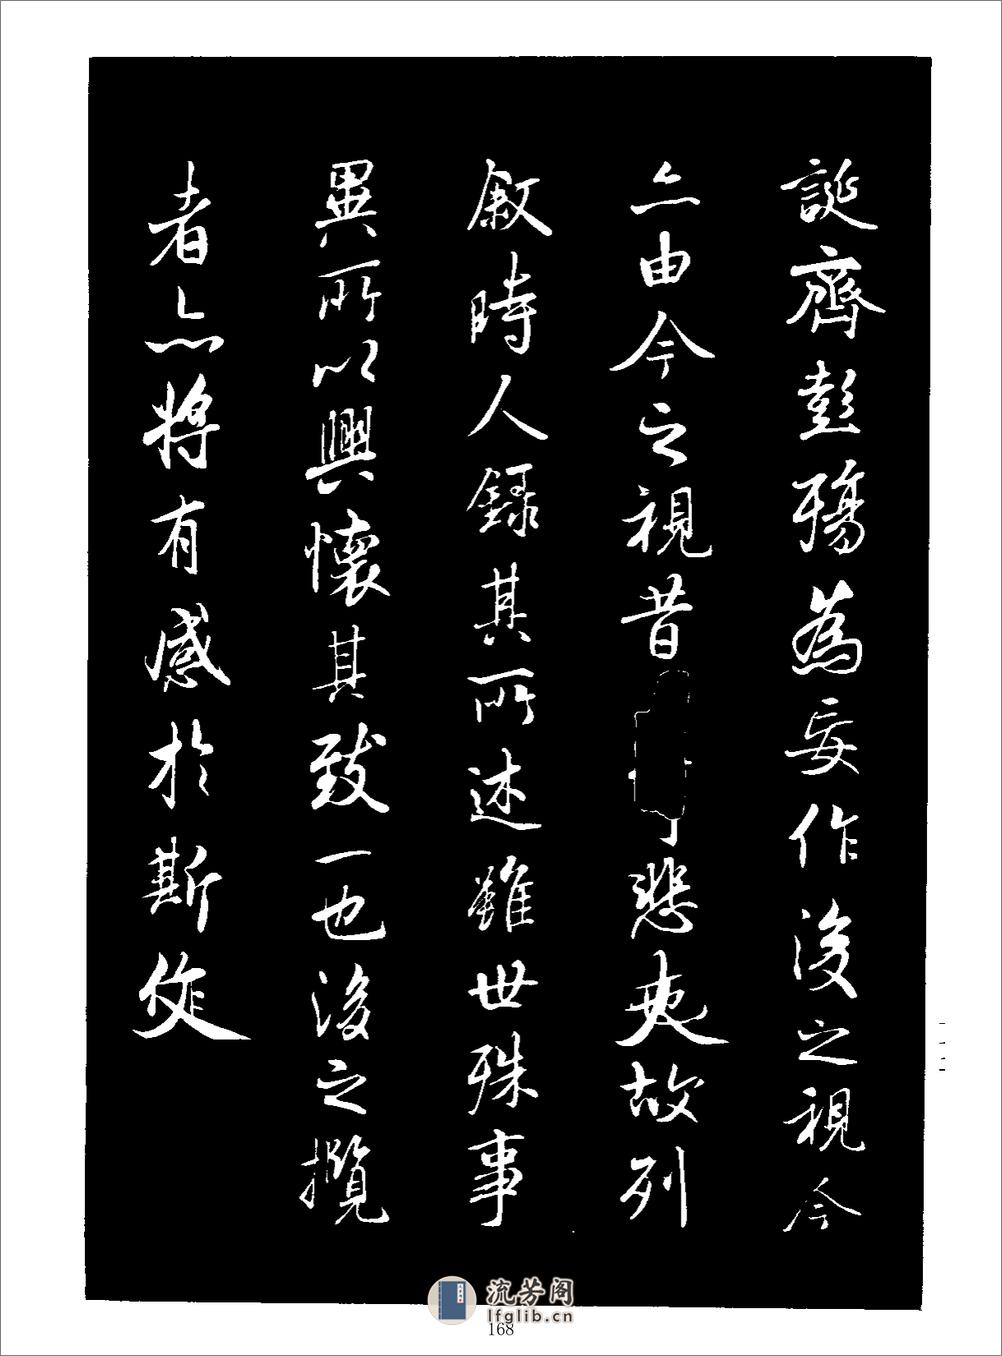 誕齊彭殤為妄作後之視今
亦由今之視昔悲夫故列
敘時人錄其所述雖世殊事
異所以興懷其致一也後之攬
者亦將有感於斯作
流芳阁
lfglib.cn
168